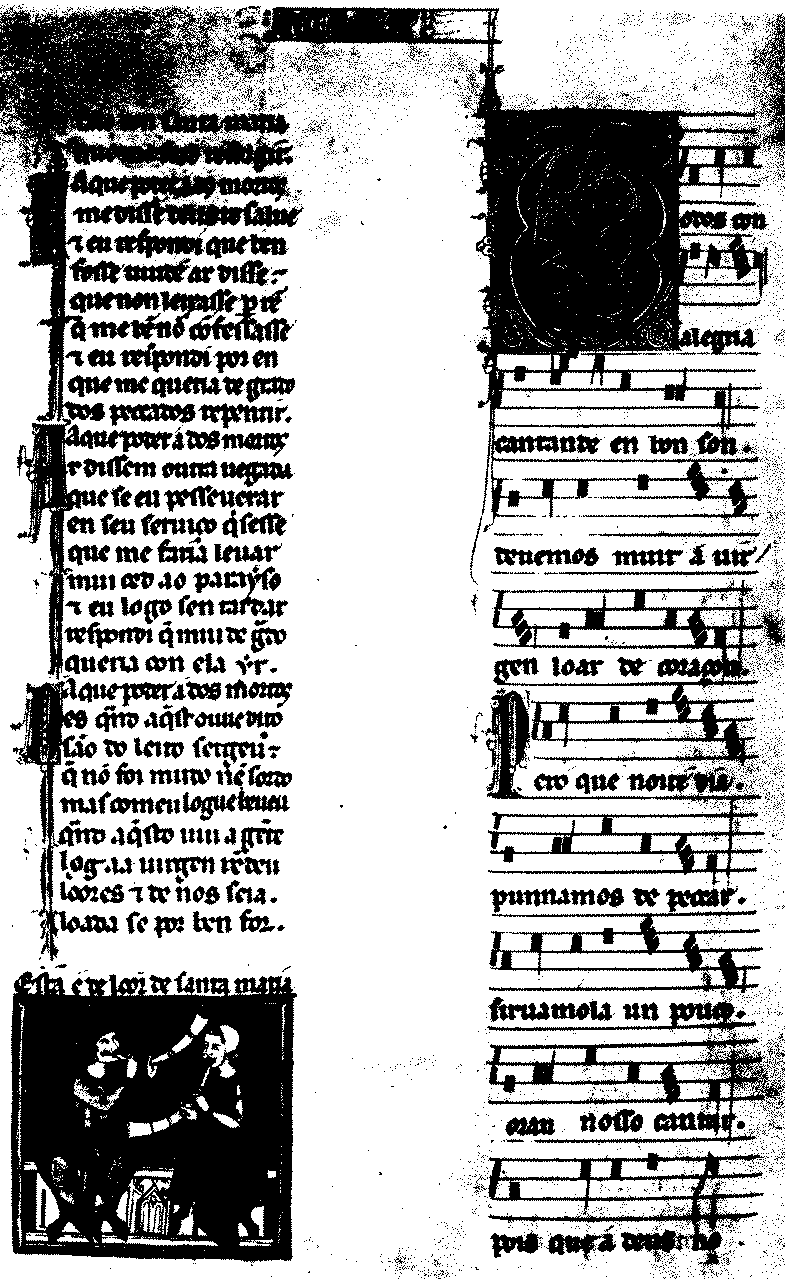 santa maria
A que poder á dos mortos
me disse
⁊ eu respondi que ben
fosse disse :~
que non leixasse p̃ rẽ
q̃ me bẽ nõ cõfessasse
⁊ eu respondi por en
que me queria de grado
dos pecados repentir.
A que poder á dos mortos
r dissem outra uegada
que se eu perseuerar
en seu seruiço quisesse
que me faria leuar
mui ced ao parayso
⁊ eu logo sen tardar
respondi q̃ mui de g̃do
queria con ela yr.
A que poder á dos mortos
es q̃ndo aq̃st ouue dito
são do leito sergeu :~
q̃ nõ foi muito nẽ
mas comeu logue beueu
q̃ndo aq̃sto uiu a gẽte
log aa uirgen rẽdeu
loores ⁊ de nos seia.
loada se por ben for.
Esta é de loor de santa maria
odos con
alegria
cantande en bon son.
deuemos muit á uir
gen loar de coraçon.
ero que noite dia.
punnamos de pecar.
siruamola un pouco.
oran nosso cantar.
pois que a deus no